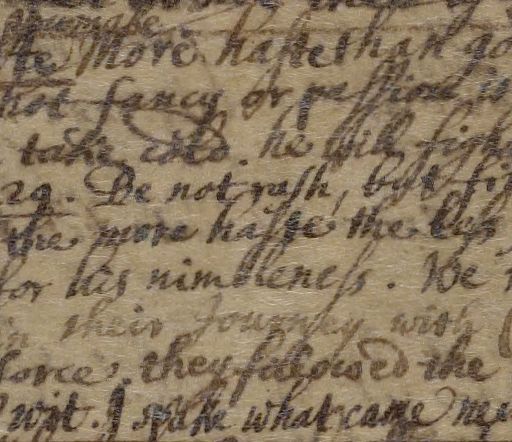 you make
more haste than go
hot fancy or passion is
take cold. he will figh
29. Be not rash, but fi
the more haste the less
for his nimbleness. We
in their Journey with
force. they folowed the
wit. I spake what came ne